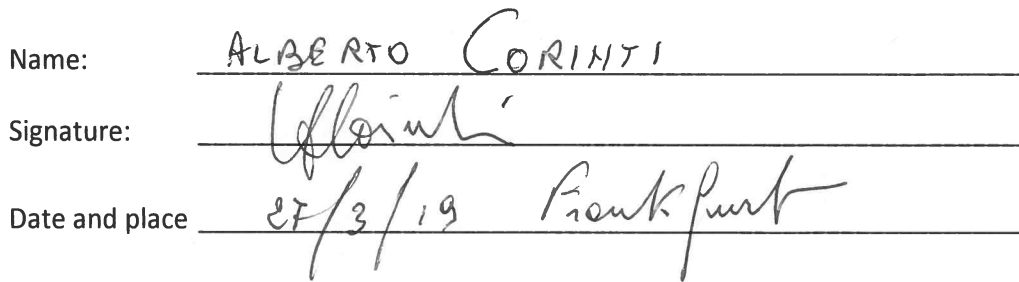 Name: ALBERTO CORINTI
Signature:
Date and place 27/3/19 Frankfurt